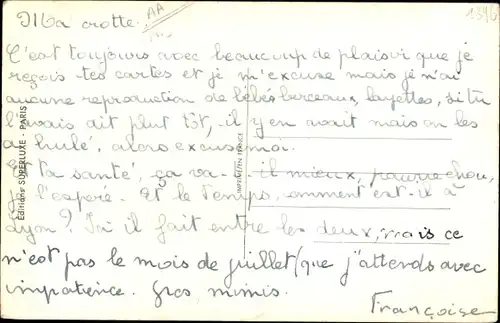 Ma crotte.
AA
1396
C'est toujours avec beaucoup de plaisir que je
reçois tes cartes et je m'excuse mais je n'ai
aucune reproduction de bébés berceaux, layettes, si tu
l'avais dit plut tôt, il y en avait mais on les
a hulé, alors excuse moi.
Et ta santé, ça va-il mieux, pauvre chou,
je l'esperé. Et le Temps, comment est-il à
Lyon? Ici il fait entre les deux, mais ce
n'est pas le mois de juillet (que j'attends avec
impatience. Gros mimis.
Françoise
Editions SUPERLUXE - PARIS